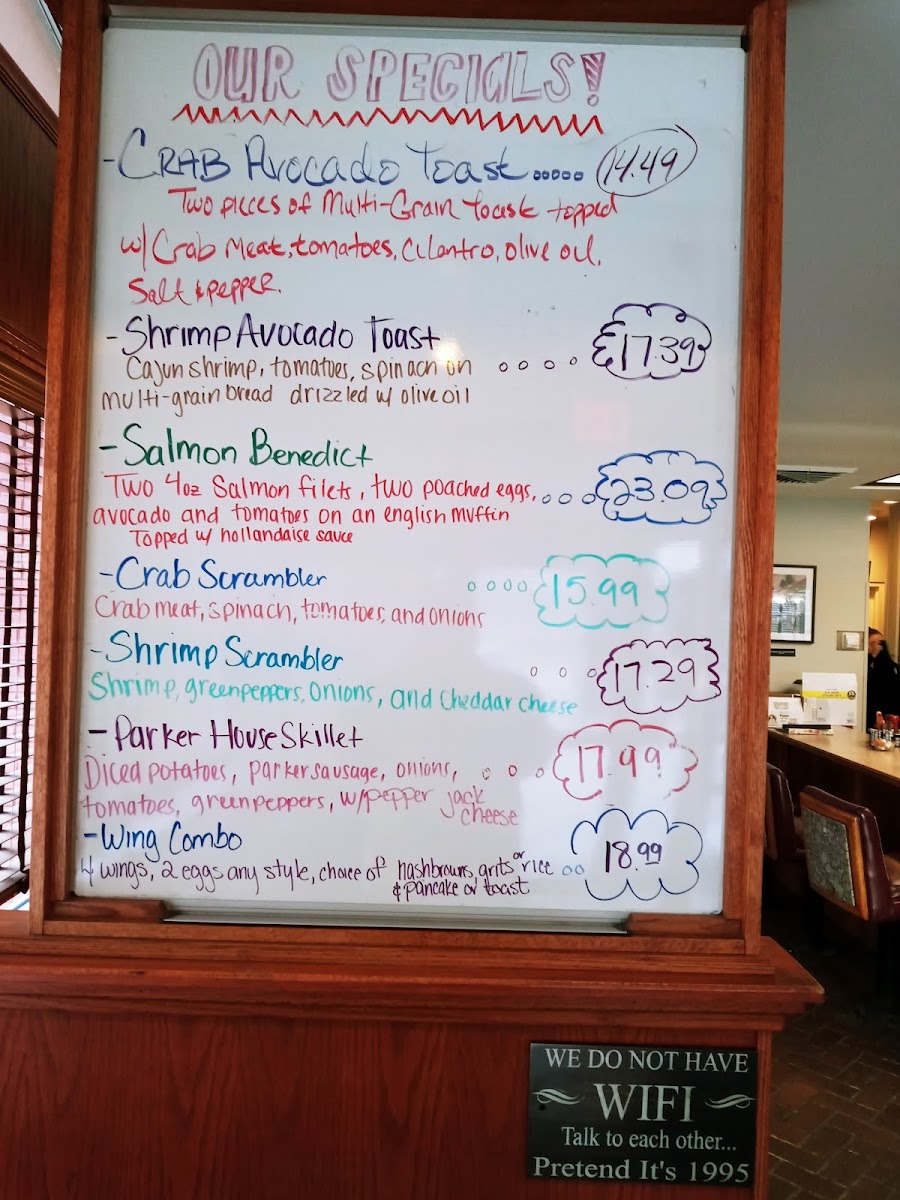 OUR SPECIALS!
- CRAB Avocado Toast ..... 14.49
Two pieces of Multi-Grain toast topped
w/ Crab Meat, tomatoes, Cilantro, olive oil,
Salt & pepper.
- Shrimp Avocado Toast
Cajun shrimp, tomatoes, spinach on .... 17.39
multi-grain bread drizzled w/ olive oil
- Salmon Benedict
Two 4oz Salmon filets, two poached eggs, ... 23.09
avocado and tomatoes on an english muffin
Topped w/ hollandaise sauce
- Crab Scrambler .... 15.99
Crab meat, spinach, tomatoes, and onions
- Shrimp Scrambler ... 17.29
Shrimp, green peppers, onions, and cheddar cheese
- Parker House Skillet
Diced potatoes, parker sausage, onions, ... 17.99
tomatoes, green peppers, w/ pepper jack
cheese
- Wing Combo
4 wings, 2 eggs any style, choice of hashbrowns, grits or rice .. 18.99
& pancake or toast
WE DO NOT HAVE
WIFI
Talk to each other...
Pretend It's 1995